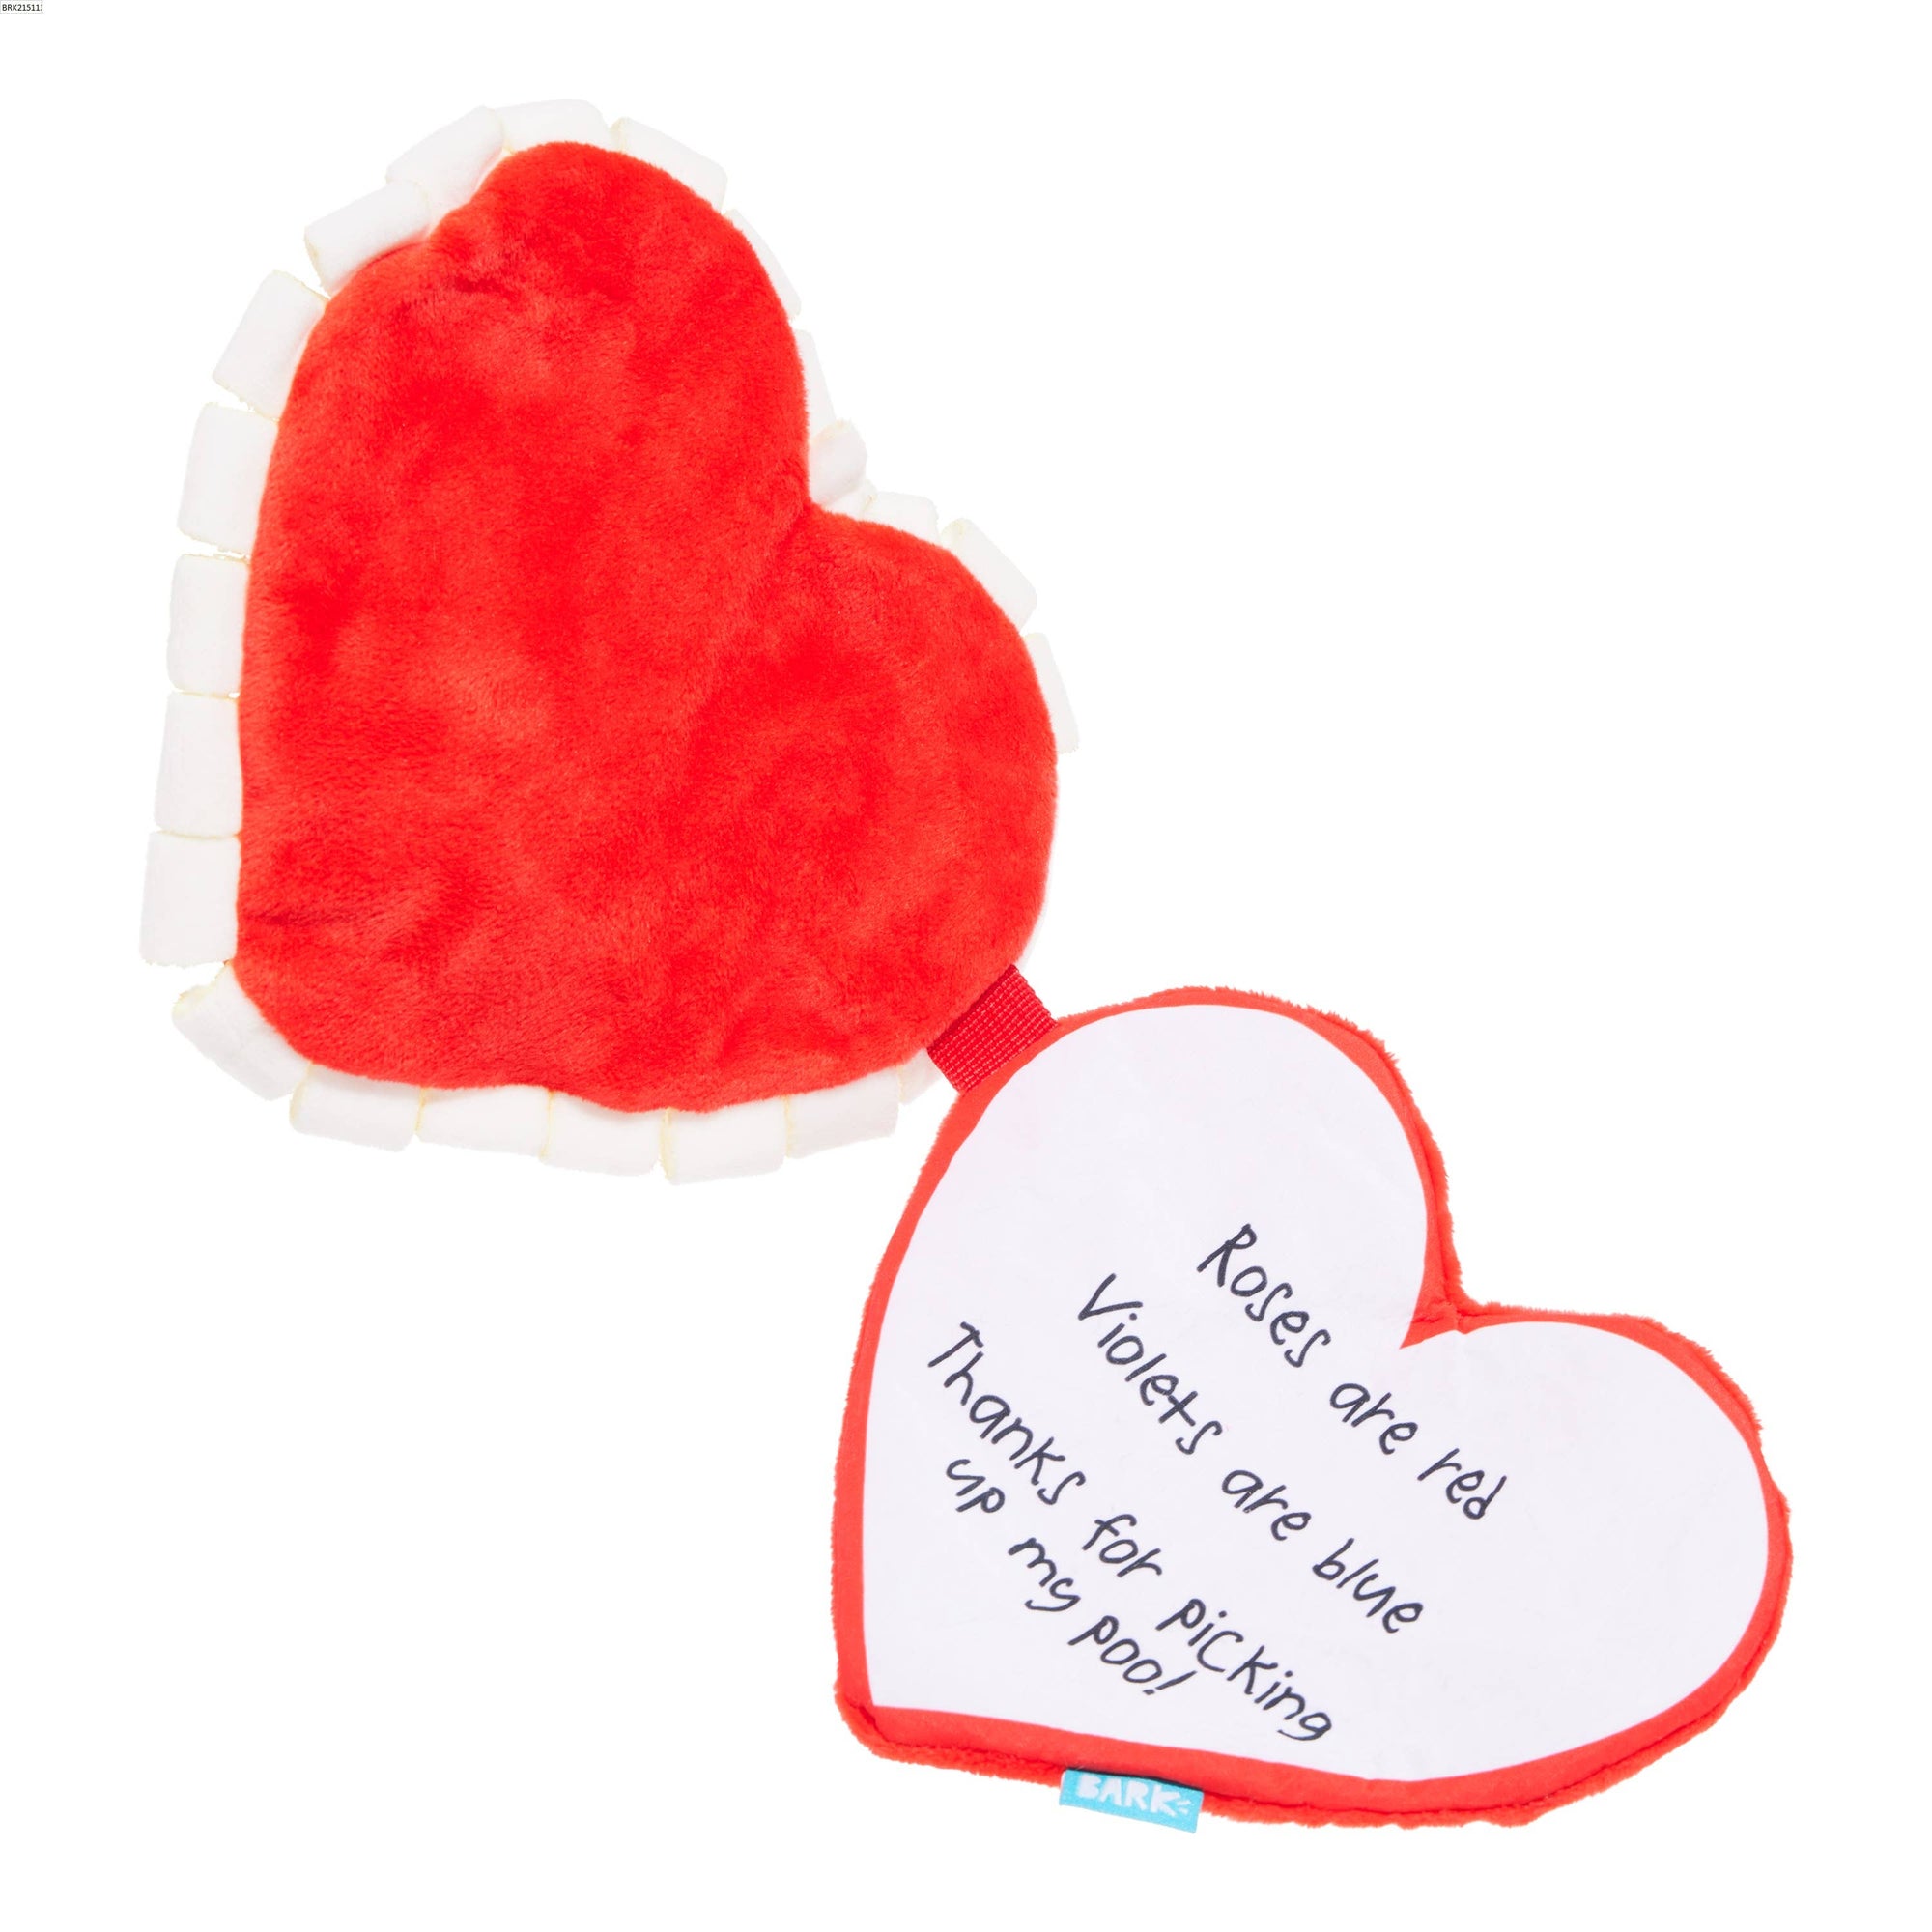 BRK21511
Roses are red
Violets are blue
Thanks for picking
up my poo!
BARK